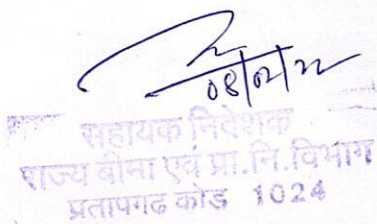 08/02/22
सहायक निदेशक
राज्य बीमा एवं प्रा.नि.विभाग
प्रतापगढ कोड़ 1024